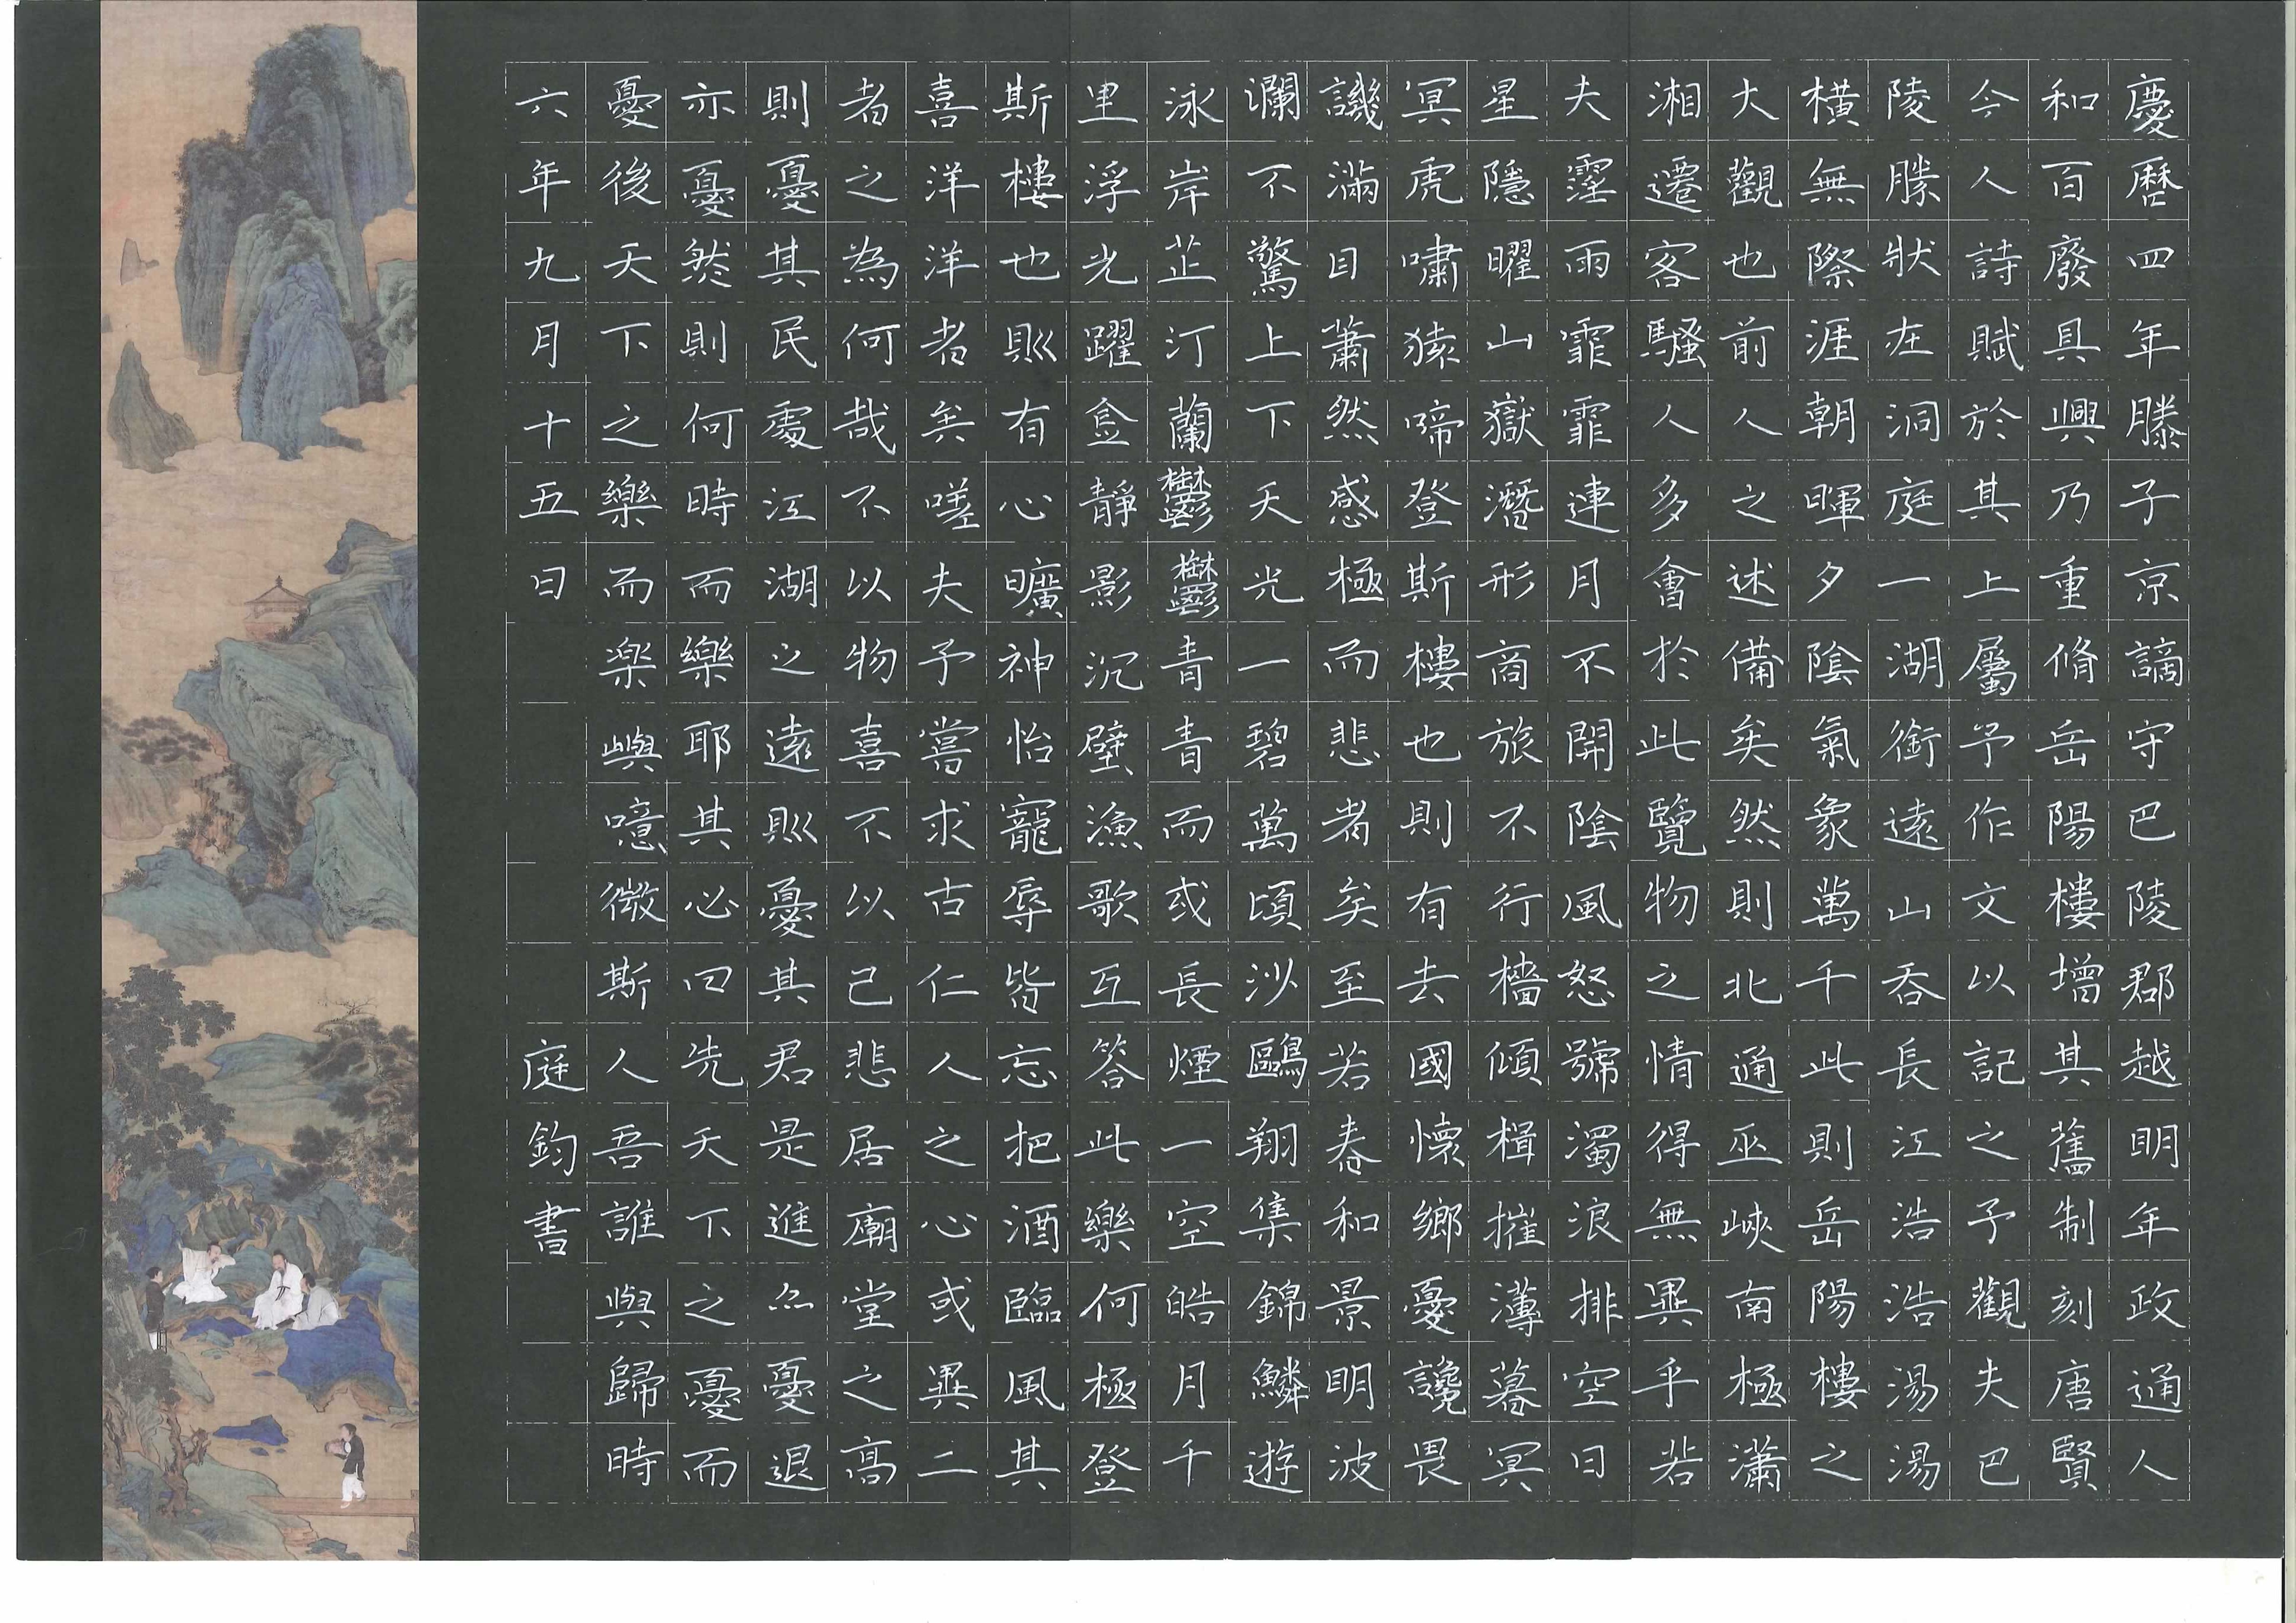 慶曆四年滕子京謫守巴陵郡越明年政通人
和百廢具興乃重脩岳陽樓增其舊制刻唐賢
今人詩賦於其上屬予作文以記之予觀夫巴
陵勝狀在洞庭一湖銜遠山吞長江浩浩湯湯
橫無際涯朝暉夕陰氣象萬千此則岳陽樓之
大觀也前人之述備矣然則北通巫峽南極瀟
湘遷客騷人多會於此覽物之情得無異乎若
夫霪雨霏霏連月不開陰風怒號濁浪排空日
星隱曜山嶽潛形商旅不行檣傾楫摧薄暮冥
冥虎嘯猿啼登斯樓也則有去國懷鄉憂讒畏
譏滿目蕭然感極而悲者矣至若春和景明波
瀾不驚上下天光一碧萬頃沙鷗翔集錦鱗遊
泳岸芷汀蘭鬱鬱青青而或長煙一空皓月千
里浮光躍金靜影沉璧漁歌互答此樂何極登
斯樓也則有心曠神怡寵辱皆忘把酒臨風其
喜洋洋者矣嗟夫予嘗求古仁人之心或異二
者之為何哉不以物喜不以己悲居廟堂之高
則憂其民處江湖之遠則憂其君是進亦憂退
亦憂然則何時而樂耶其必曰先天下之憂而
憂後天下之樂而楽嶼噫微斯人吾誰與歸時
六年九月十五日 庭鈞書